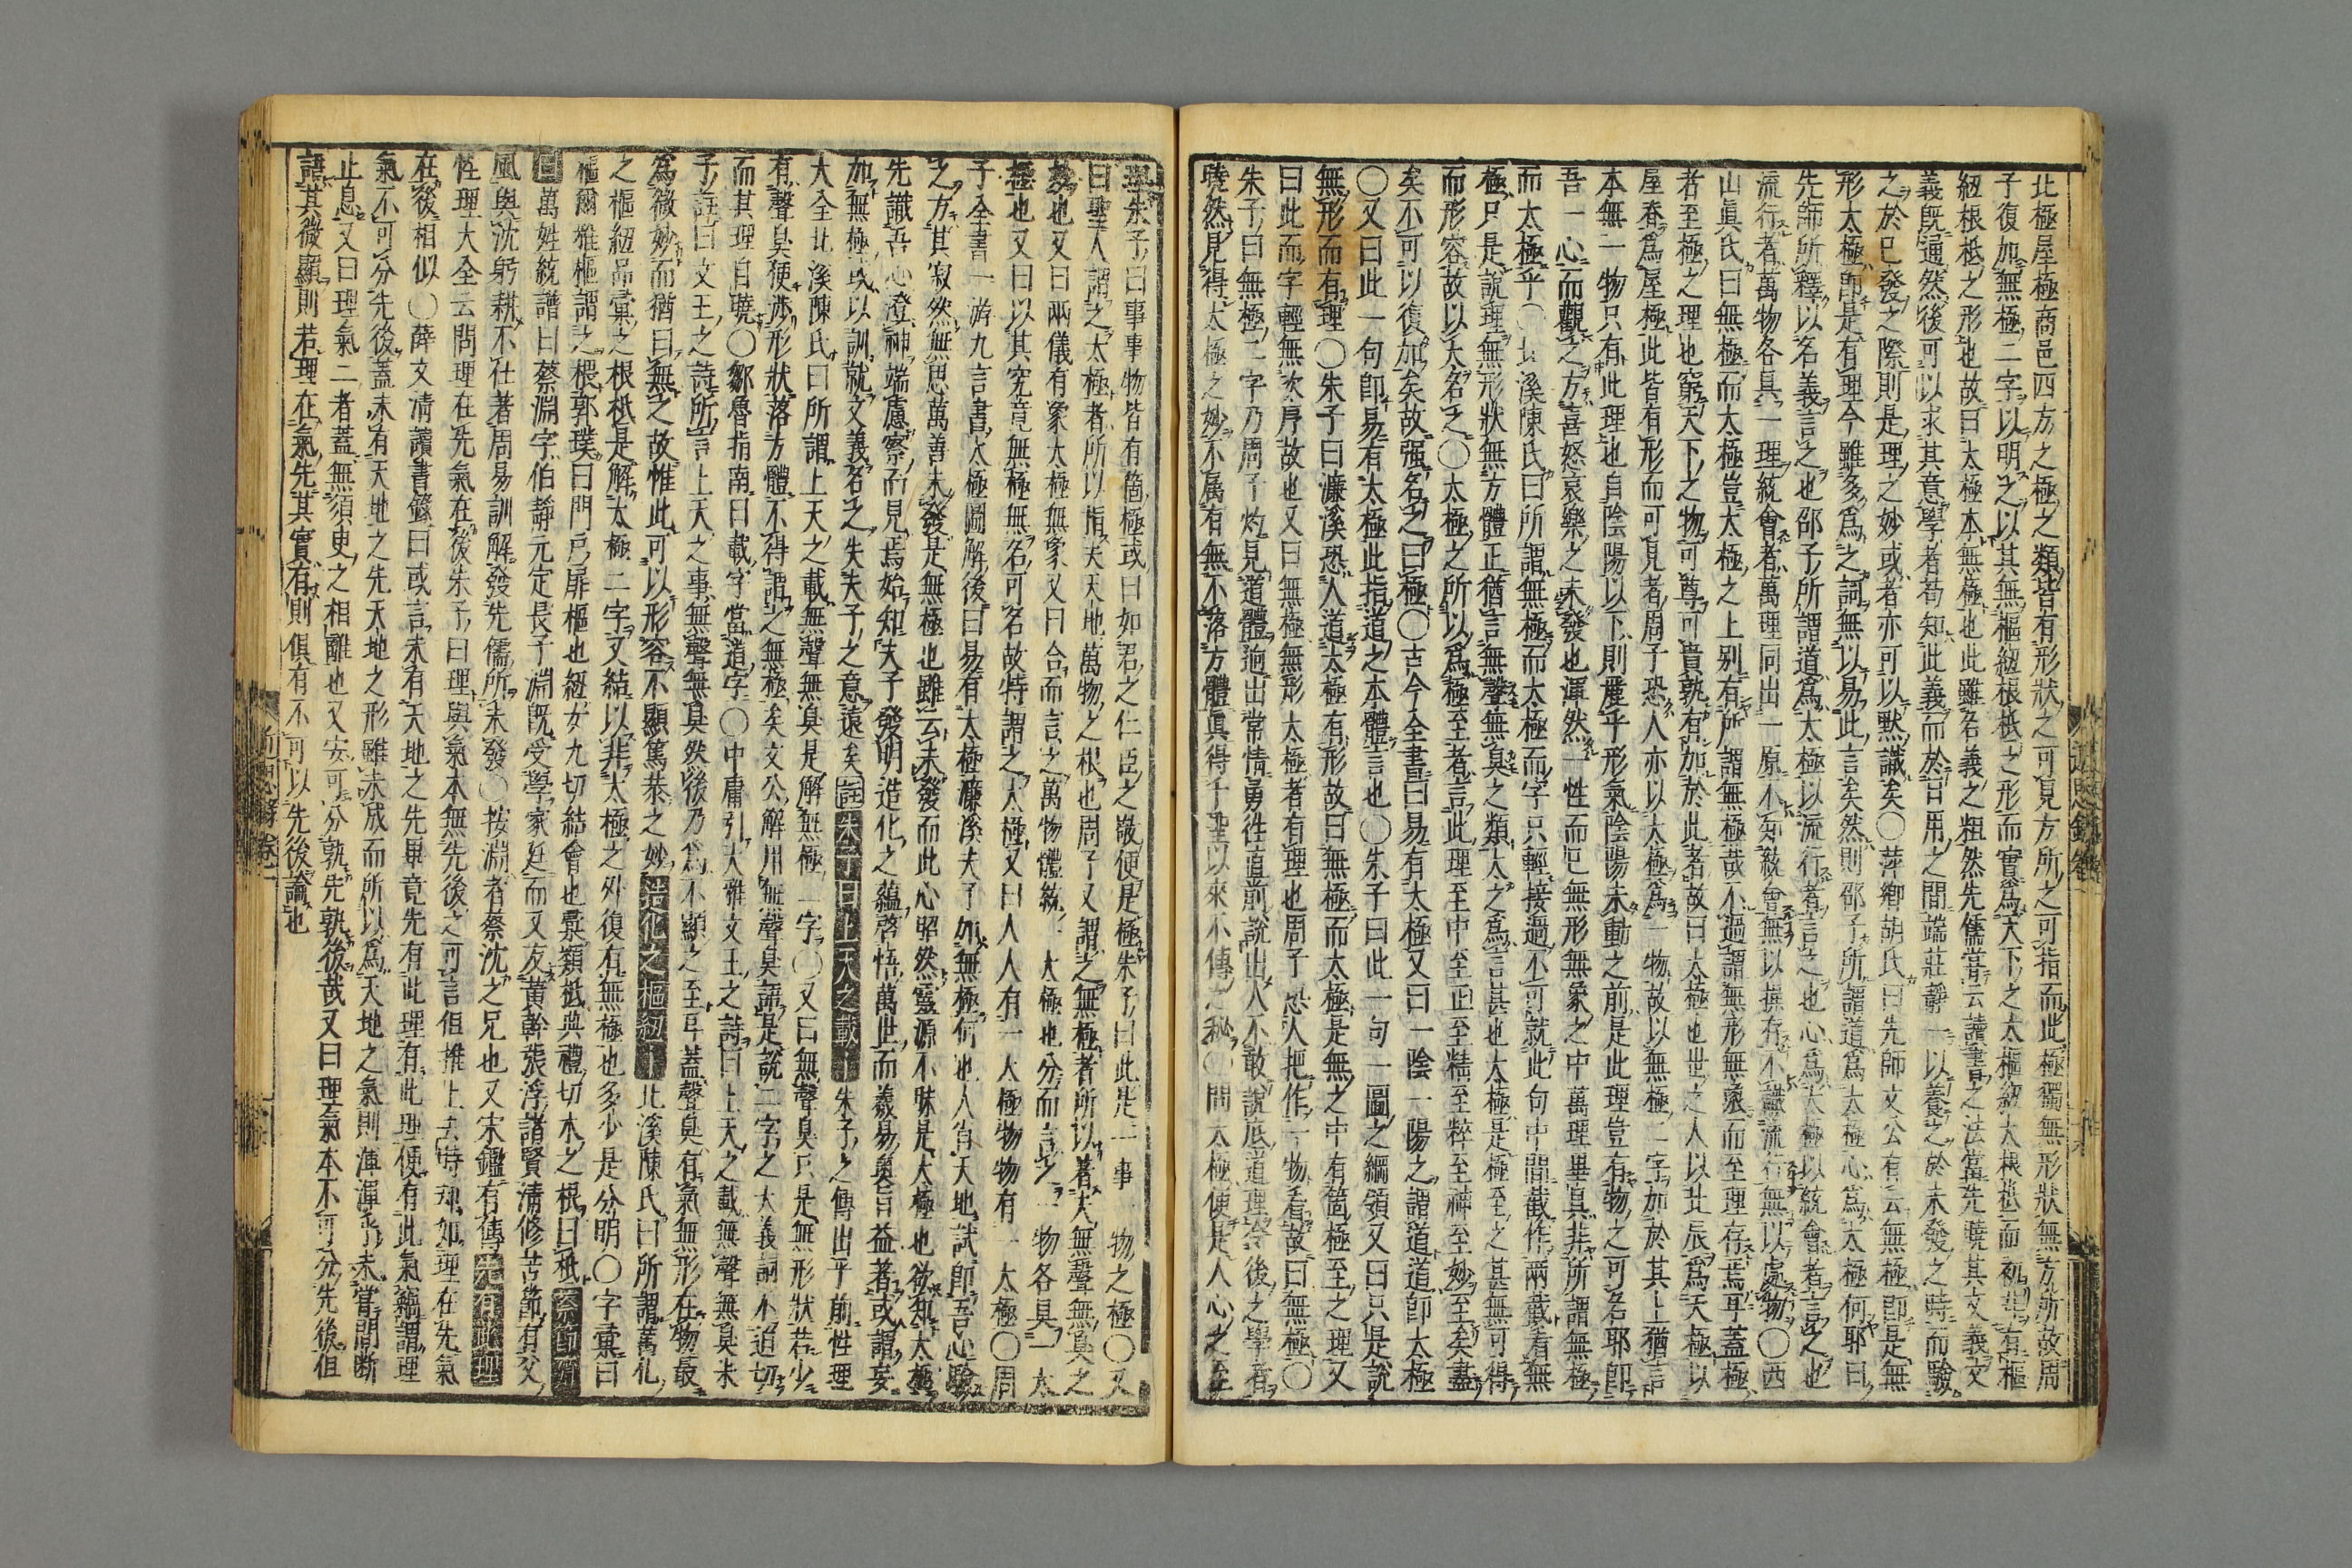 北極屋極商邑四方之極之類皆有形狀之可見方所之可指而此極獨無形狀無方所故周
子復加無極二字以明之以其無樞紐根柢之形而實爲天下之大樞紐大根柢而初非有樞
紐根柢之形也故曰太極本無極也此雖名義之粗然先儒嘗云讀書之法當先曉其文義文
義既通然後可以求其意學者苟知此義而於日用之間端莊靜一以養之於未發之時而驗
之於已發之際則是理之妙或者亦可以默識矣〇萍鄉胡氏曰先師文公有云無極即是無
形太極即是有理今雖多爲之詞無以易此言矣然則邵子所謂道爲太極心爲太極何耶曰
先師所釋以名義言之也邵子所謂道爲太極以流行者言之也心爲太極以統會者言之也
流行者萬物各具一理統會者萬理同出一原不知統會無以操存不識流行無以處物〇西
山眞氏曰無極而太極豈太極之上別有所謂無極哉不過謂無形無象而至理存焉耳蓋極
者至極之理也窮天下之物可尊可貴孰有加於此者故曰太極也世之人以北辰爲天極以
屋脊爲屋極此皆有形而可見者周子恐人亦以太極爲一物故以無極二字加於其上猶言
本無一物只有此理也自陰陽以下則麗乎形氣陰陽未動之前是此理豈有物之可名耶即
吾一心而觀之方喜怒哀樂之未發也渾然一性而已無形無象之中萬理畢具非所謂無極
而太極乎〇北溪陳氏曰所謂無極而太極而字只輕接過不可就此句中間截作兩截看無
極只是說理無形狀無方體正猶言無聲無臭之類太之爲言甚也太極是極至之甚無可得
而形容故以太名之〇太極之所以爲極至者言此理至中至正至精至粹至神至妙至矣盡
矣不可以復加矣故强名之曰極〇古今全書曰易有太極又曰一陰一陽之謂道道即太極
〇又曰此一句即易有太極此指道之本體言也〇朱子曰此一句一圖之綱領又曰只是說
無形而有理〇朱子曰濂溪恐人道太極有形故曰無極而太極是無之中有箇極至之理又
曰此而字輕無次序故也又曰無極無形太極者有理也周子恐人把作一物看故曰無極〇
朱子曰無極二字乃周子灼見道體逈出常情勇往直前說出人不敢說底道理令後之學者
曉然見得太極之妙不属有無不落方體眞得千聖以來不傳之秘〇問太極便是人心之至
理朱子曰事事物皆有箇極或曰如君之仁臣之敬便是極朱子曰此是一事一物之極〇又
曰聖人謂之太極者所以指夫天地萬物之根也周子又謂之無極者所以著夫無聲無臭之
妙也又曰兩儀有象太極無象又曰合而言之萬物體統一太極也分而言之一物各具一太
極也又曰以其究竟無極無名可名故特謂之太極又曰人人有一太極物物有一太極〇周
子全書一游九言書太極圖解後曰易有太極濂溪夫子加無極何也人肖天地試即吾心驗
之方其寂然無思萬善未發是無極也雖云未發而此心昭然靈源不昧是太極也欲知太極
先識吾心澄神端慮察而見焉始知夫子發明造化之蘊啓悟萬世而羲易奧旨益著或謂妄
加無極或以訓就文義名之失夫子之意遠矣註朱子曰上天之載一朱子之傳出乎前性理
大全北溪陳氏曰所謂上天之載無聲無臭是解無極二字〇又曰無聲臭只是無形狀若少
有聲臭便涉形狀落方體不得謂之無極矣文公解用無聲臭語是說二字之大義詞不迫切
而其理自曉〇鄒魯指南曰載字當道字〇中庸引大雅文王之詩曰上天之載無聲無臭朱
子註曰文王之詩所言上天之事無聲無臭然後乃爲不顯之至耳蓋聲臭有氣無形在物最
爲微妙而猶曰無之故惟此可以形容不顯篤恭之妙造化之樞紐一北溪陳氏曰所謂萬化
之樞紐品彙之根柢是解太極二字又結以非太極之外復有無極也多少是分明〇字彙曰
樞爾雅樞謂之椳郭璞曰門戶扉樞也紐女九切結會也彙類柢典禮切木之根曰柢蔡節齋
曰萬姓統譜曰蔡淵字伯靜元定長子淵既受學家廷而又友黃幹張浮諸賢清修苦節有父
風與沈躬耕不仕著周易訓解發先儒所未發〇按淵者蔡沈之兄也又宋鑑有傳先有此理
性理大全云問理在先氣在後朱子曰理與氣本無先後之可言但推上去時却如理在先氣
在後相似〇薛文清讀書錄曰或言未有天地之先畢竟先有此理有此理便有此氣竊謂理
氣不可分先後蓋未有天地之先天地之形雖未成而所以爲天地之氣則渾渾乎未嘗間斷
止息又曰理氣二者蓋無須臾之相離也又安可分孰先孰後哉又曰理氣本不可分先後但
語其微顯則若理在氣先其實有則俱有不可以先後論也